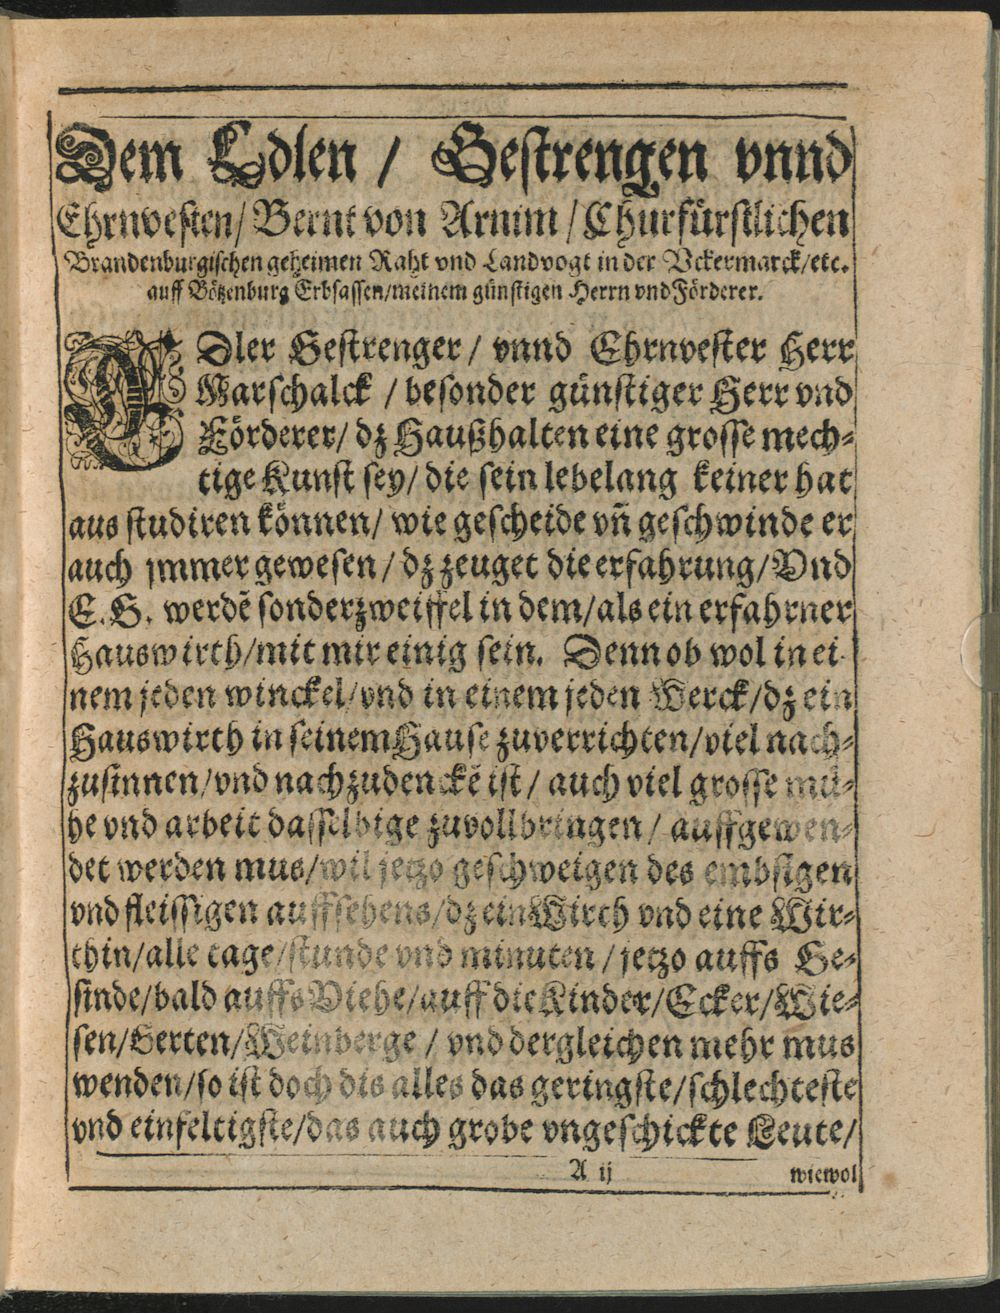 Dem Edlen / Gestrengen vnnd
Ehrnvesten/ Bernt von Arnim / Churfürstlichen
Brandenburgischen geheimen Raht vnd Landvogt in der Vckermarck/etc.
auff Bötzenburg Erbsassen/meinem günstigen Herrn vnd Förderer.
EDler Gestrenger / vnnd Ehrnvester Herr
Marschalck / besonder günstiger Herr vnd
Förderer/ dz Haußhalten eine grosse mech-
tige Kunst sey/ die sein lebelang keiner hat
aus studiren können/ wie gescheide vñ geschwinde er
auch jmmer gewesen / dz zeuget die erfahrung/ Vnd
E.G. werdẽ sonder zweiffel in dem/als ein erfahrner
Hauswirth/mit mir einig sein. Denn ob wol in ei-
nem jeden winckel/vnd in einem jeden Werck/dz ein
Hauswirth in seinem Hause zuverrichten/viel nach-
zusinnen/vnd nachzudenckẽ ist / auch viel grosse mü-
he vnd arbeit dasselbige zuvollbringen / auffgewen-
det werden mus/wil jetzo geschweigen des embsigen
vnd fleissigen auffsehens/dz ein Wirth vnd eine Wir-
thin/alle tage/stunde vnd minuten / jetzo auffs Ge-
sinde/bald auffs Viehe/auff die Kinder/Ecker/Wie-
sen/Gerten/Weinberge / vnd dergleichen mehr mus
wenden/so ist doch dis alles das geringste/schlechteste
vnd einfeltigste/das auch grobe vngeschickte Leute/
A ij wiewol